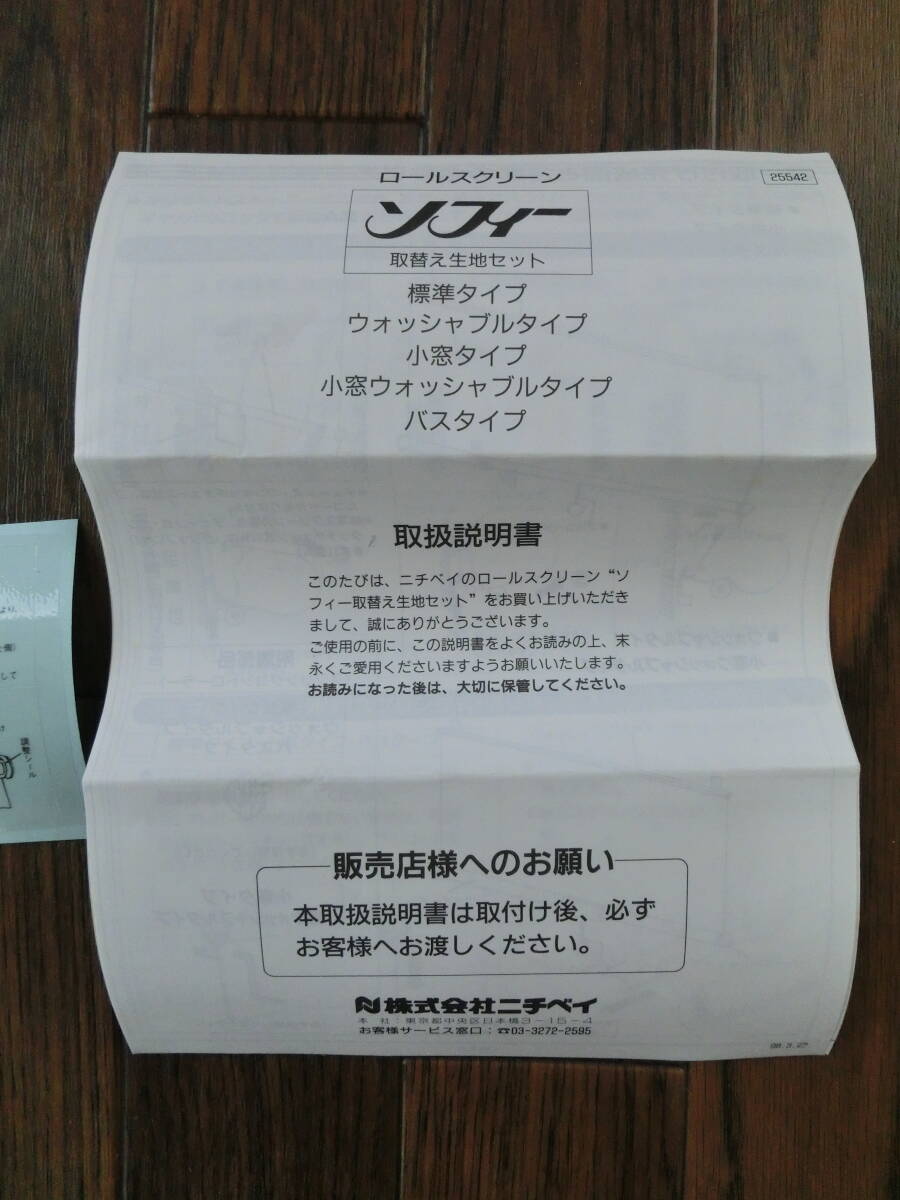 ロールスクリーン
25542
ソフィー
取替え生地セット
標準タイプ
ウォッシャブルタイプ
小窓タイプ
小窓ウォッシャブルタイプ
バスタイプ
取扱説明書
このたびは、ニチベイのロールスクリーン“ソ
フィー取替え生地セット”をお買い上げいただき
まして、誠にありがとうございます。
ご使用の前に、この説明書をよくお読みの上、末
永くご愛用くださいますようお願いいたします。
お読みになった後は、大切に保管してください。
販売店様へのお願い
本取扱説明書は取付け後、必ず
お客様へお渡しください。
株式会社ニチベイ
本 社：東京都中央区日本橋3-15-4
お客様サービス窓口：☎03-3272-2595
より、
して
け
調整シール